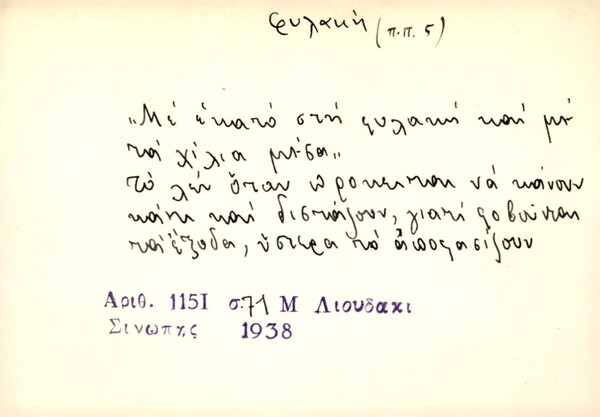 φυλακή (π.π. 5)
„Μέ ἑκατό στή φυλακή καί μέ
τά χίλια μέσα„
τό λέν ὅταν πρόκειται νά κάνουν
κάτι καί διστάζουν, γιατί φοβοῦνται
τά ἔξοδα, ὕστερα τό ἀποφασίζουν
Αριθ. 1151 σ.71 Μ Λιουδακι
Σινωπης 1938